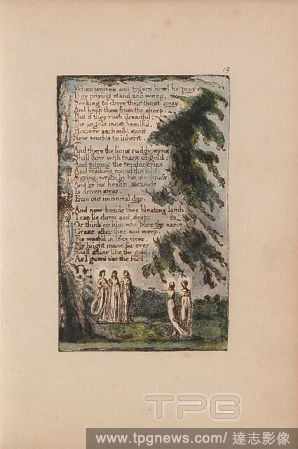 When wolves and tygers howl for prey
They pitying stand and weep;
Seeking to drive their thirst away,
And keep them from the sheep.
But if they rush dreadful;
The angels most heedful,
Recieve each mild spirit
New worlds to inherit.
And there the lions ruddy eyes
Shall flow with tears of gold:
And pitying the tender cries,
And walking round the fold:
Saying: wrath by his meekness
And by his health, sickness
Is driven away,
From our immortal day.
And now beside thee bleating lamb,
I can lie down and sleep;
Or think on him who bore thy name
Graze after thee and weep.
For wash'd in lifes river,
My bright mane for ever,
Shall shine like the gold,
As I guard o'er the fold.
TPG
www.tpgnews.com/ 達志影像